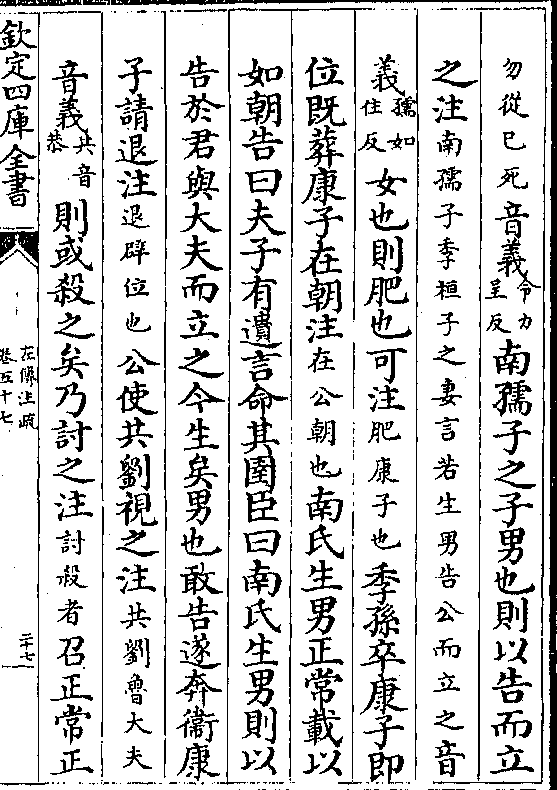 勿從已死音義令力呈反南孺子之子男也則以告而立
之注南孺子季桓子之妻言若生男告公而立之音
義孺如住反女也則肥也可注肥康子也季孫卒康子即
位既葬康子在朝注在公朝也南氏生男正常載以
如朝告曰夫子有遺言命其圉臣曰南氏生男則以
告於君與大夫而立之今生矣男也敢告遂奔衞康
子請退注退辟位也公使共劉視之注共劉魯大夫
音義共音恭則或殺之矣乃討之注討殺者召正常正
欽定四庫全書
左傳注疏
卷五十七
二十七